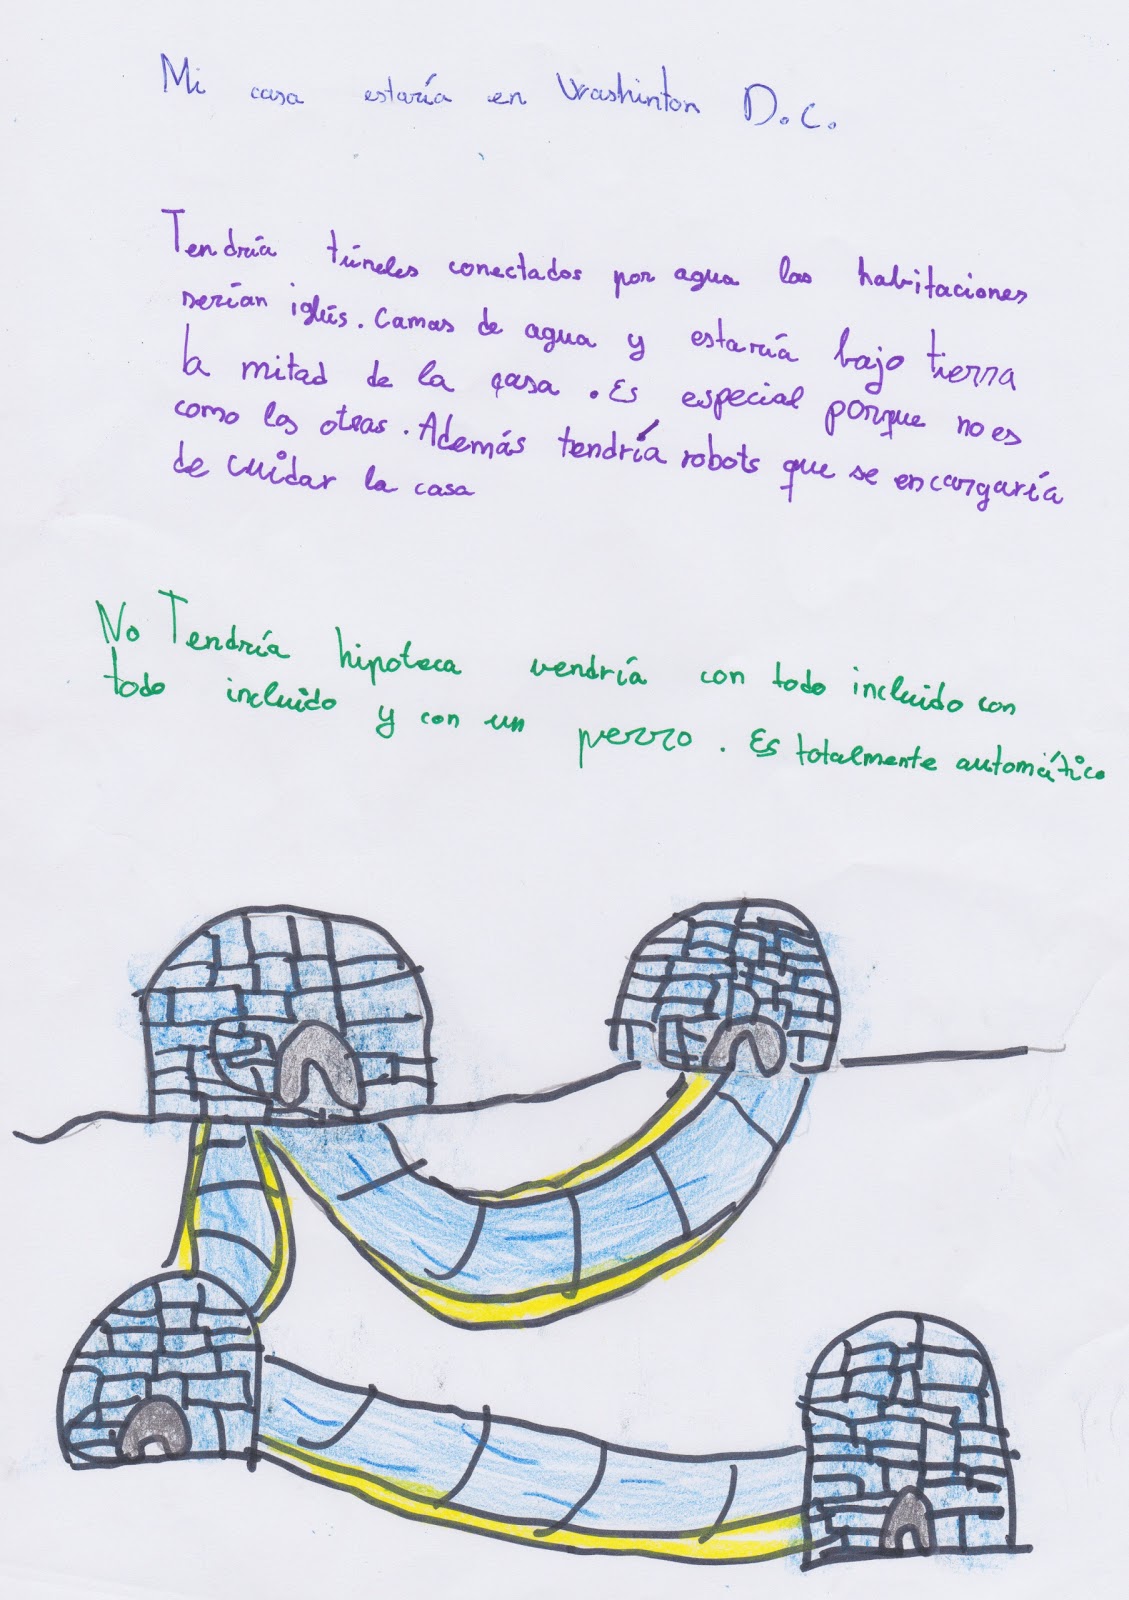 Mi casa estaría en Washinton D.C.
Tendría túneles conectados por agua las habitaciones
serían iglús. Camas de agua y estaría bajo tierra
la mitad de la casa. Es especial porque no es
como los otras. Además tendría robots que se encargaría
de cuidar la casa
No Tendría hipoteca vendría con todo incluido con
todo incluido y con un perro. Es totalmente automático